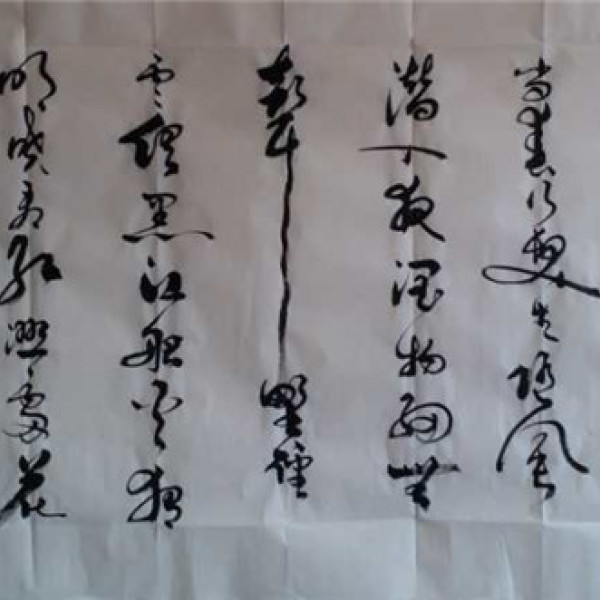 當春乃發生隨風
潛入夜潤物細無
聲野徑
雲俱黑江船火獨
明曉看紅濕處花